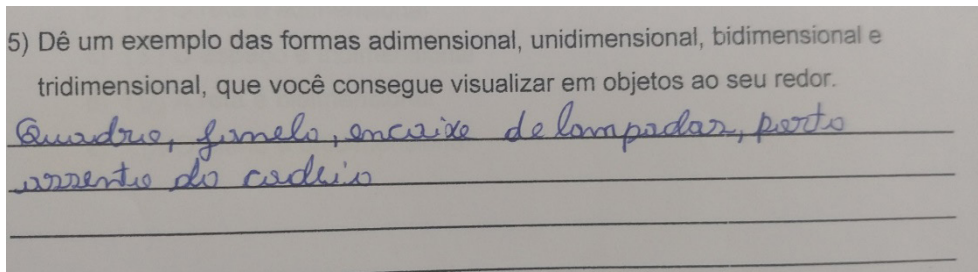 5) Dê um exemplo das formas adimensional, unidimensional, bidimensional e
tridimensional, que você consegue visualizar em objetos ao seu redor.
Quadro, janela, encaixe de lampadas, porta
assento da cadeira